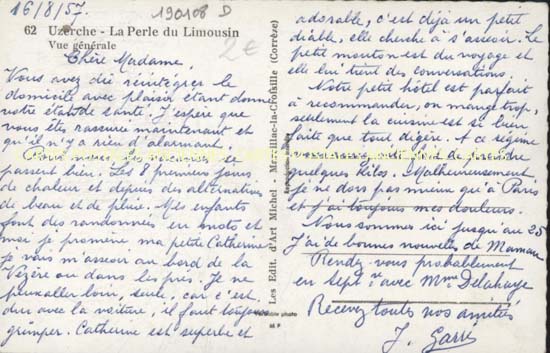 16/8/57.
190108 D
62 Uzerche - La Perle du Limousin
Vue générale
2€
Chère Madame,
Vous avez dû réintégrer le
domicile avec plaisir étant donné
votre état de santé. J'espère que
vous êtes rassurée maintenant et
qu'il n'y a rien d'alarmant.
Pour nous, les vacances se
passent bien. Les 8 premiers jours
de chaleur et depuis des alternatives
de beau et de pluie. Mes enfants
font des randonnées en moto et
moi je promène ma petite Catherine
je vais m'asseoir au bord de la
Vézère ou dans les prés. Je ne
peux aller loin, seule, car c'est
dur avec la voiture, il faut toujours
grimper. Catherine est superbe et
Les Edit. d'Art Michel - Marcillac-la-Croisille (Corrèze)
véritable photo
adorable, c'est déjà un petit
diable, elle cherche à s'asseoir. Le
petit mouton est du voyage et
elle lui tient des conversations.
Notre petit hôtel est parfait
à recommander, on mange trop,
seulement la cuisine est si bien
faite que tout digère. A ce régime
quelques kilos. Malheureusement,
je ne dors pas mieux qu'à Paris
et j'ai toujours mes douleurs.
Nous sommes ici jusqu'au 25
J'ai de bonnes nouvelles de Maman
Rendez-vous probablement
en sept.re avec Mme Delahaye
Recevez toutes nos amitiés
J. Garré